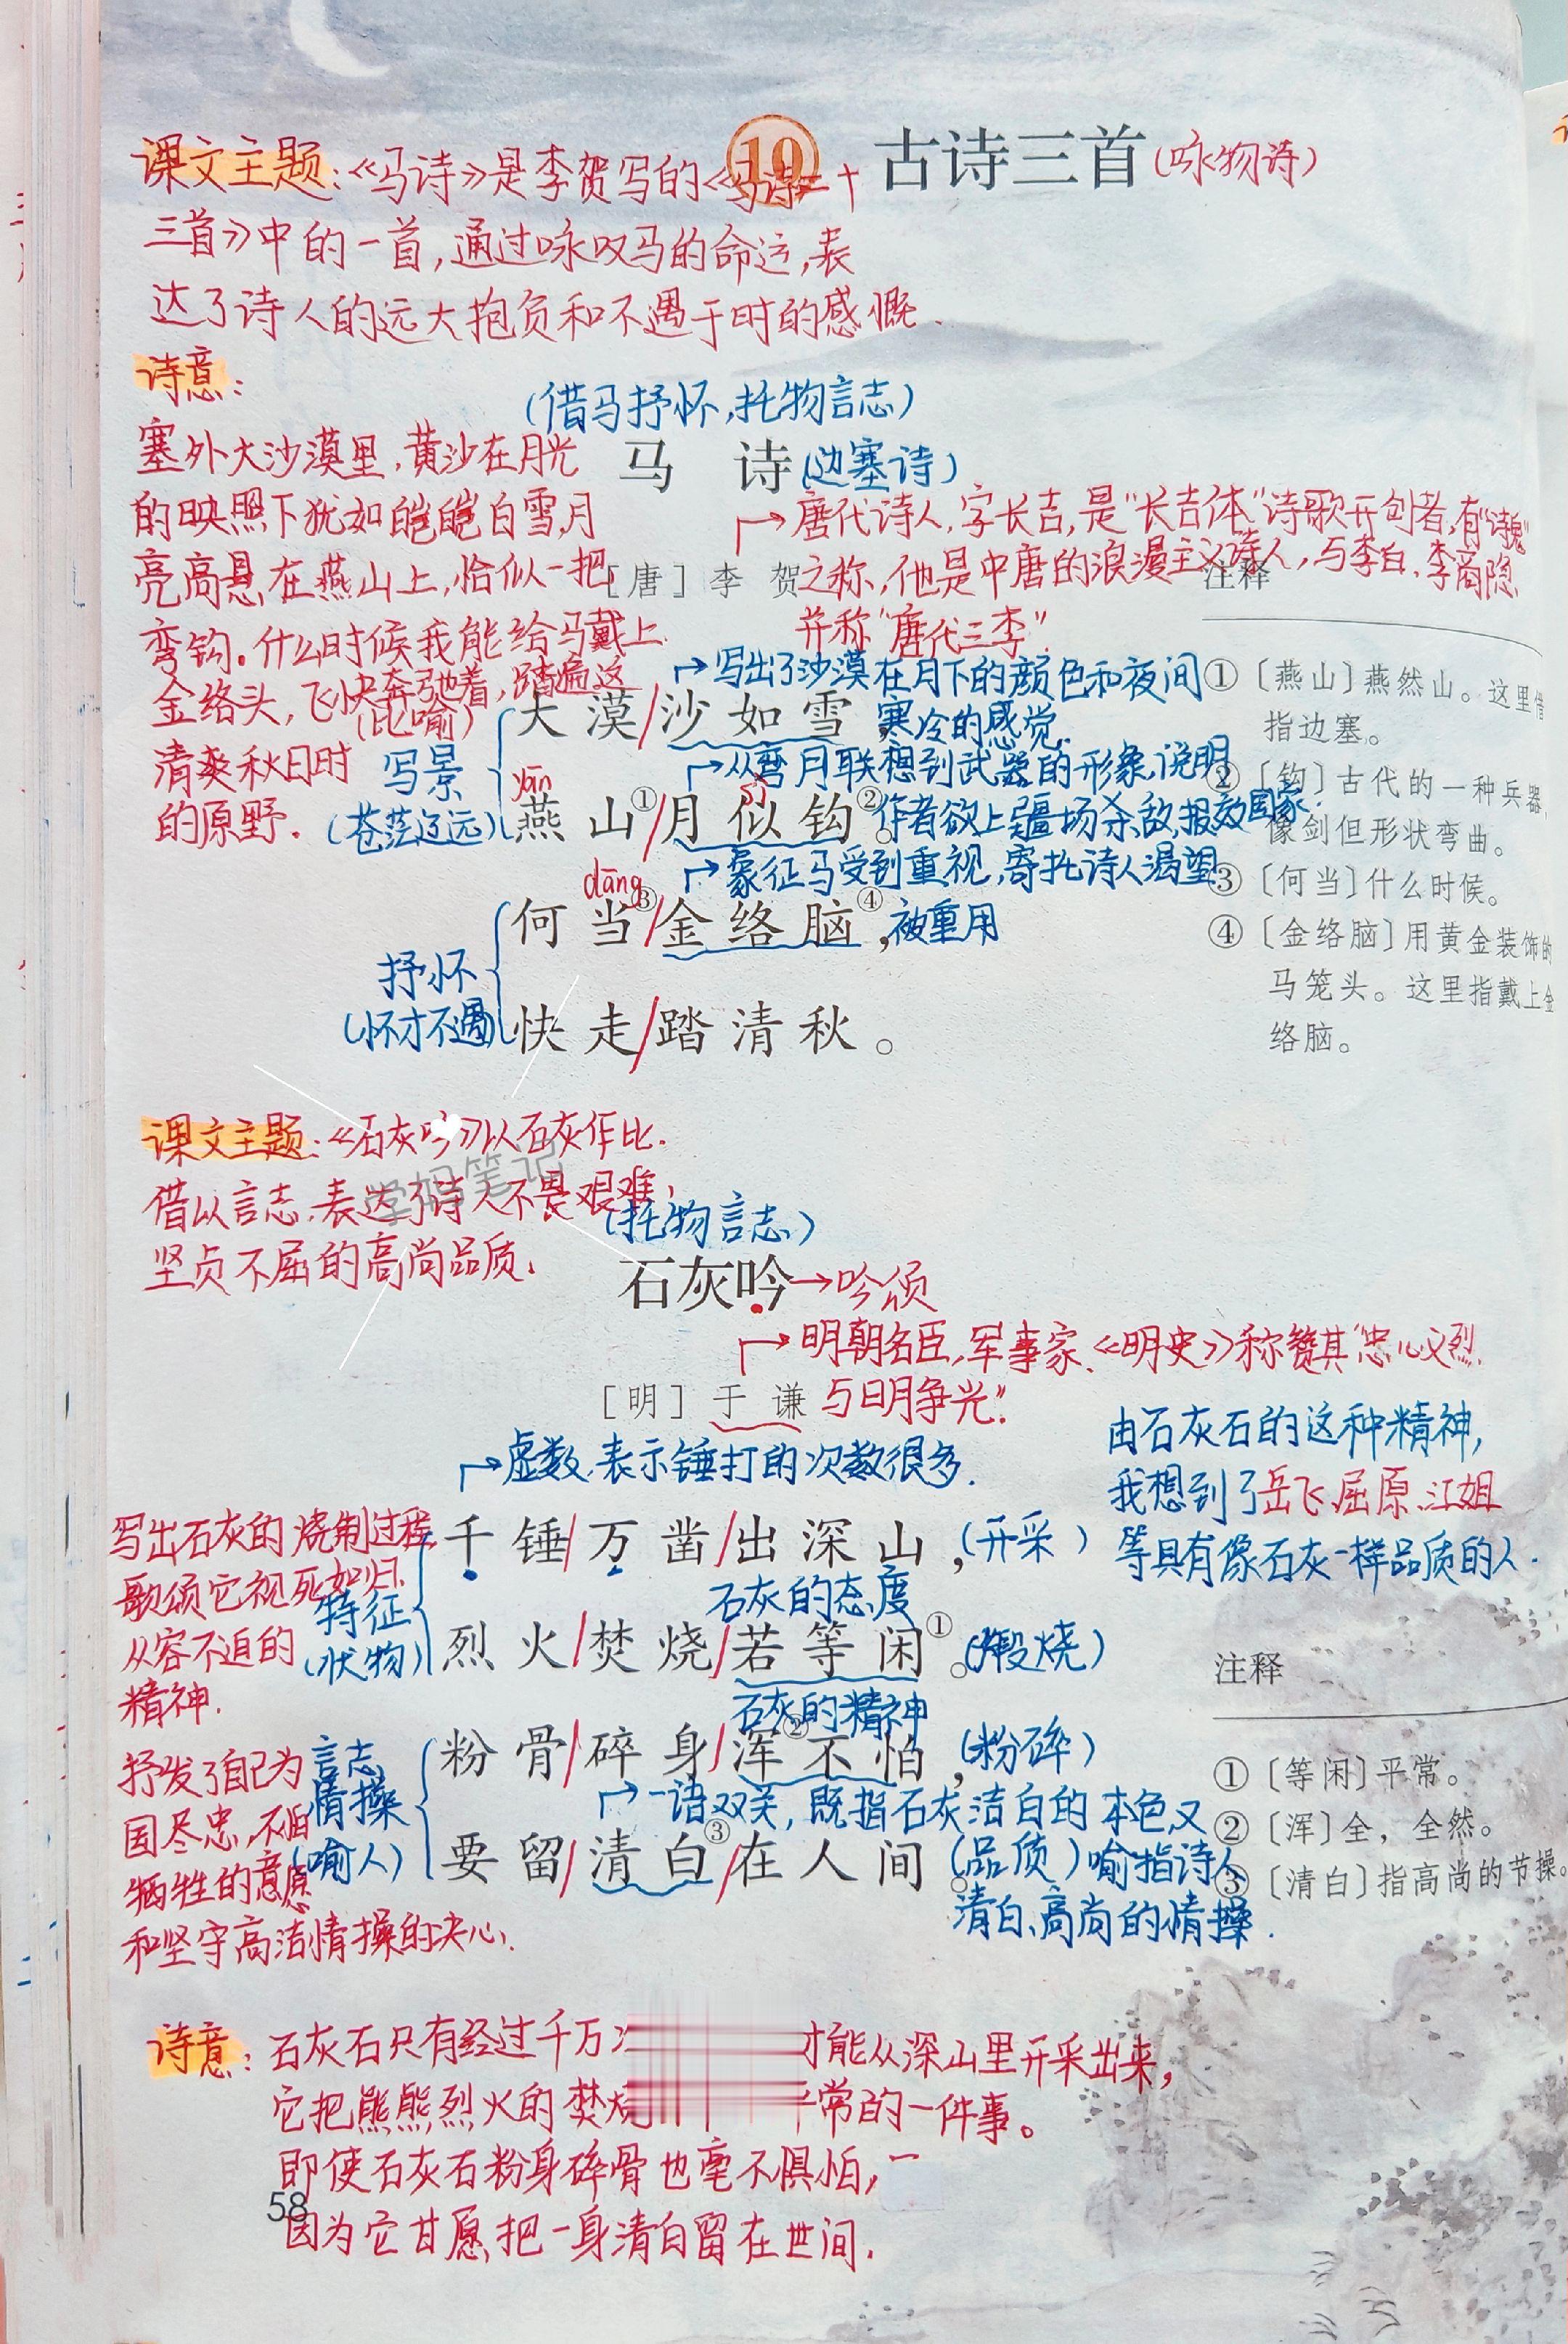 10 古诗三首(咏物诗)
课文主题:《马诗》是李贺写的《马诗二十
三首》中的一首,通过咏叹马的命运,表
达了诗人的远大抱负和不遇于时的感慨.
诗意:
塞外大沙漠里,黄沙在月光
的映照下犹如皑皑白雪,月
亮高悬在燕山上,恰似一把
弯钩。什么时候我能给马戴上
金络头,飞快奔驰着,踏遍这
清爽秋日时
的原野.
(借马抒怀,托物言志)
马 诗(边塞诗)
→唐代诗人,字长吉,是“长吉体”诗歌开创者,有“诗鬼”
[唐]李 贺 之称,他是中唐的浪漫主义诗人,与李白、李商隐
并称“唐代三李”.
→写出了沙漠在月下的颜色和夜间
寒冷的感觉.
(比喻)
大漠/沙如雪,
写景
(苍茫辽远)
→从弯月联想到武器的形象,说明
作者欲上疆场杀敌,报效国家.
yān sì
燕山①/月似钩②。
→象征马受到重视,寄托诗人渴望
被重用
dāng
何当③/金络脑④,
抒怀
(怀才不遇)
快走/踏清秋。
注释
①〔燕山〕燕然山。这里借
指边塞。
②〔钩〕古代的一种兵器,
像剑但形状弯曲。
③〔何当〕什么时候。
④〔金络脑〕用黄金装饰的
马笼头。这里指戴上金
络脑。
课文主题:《石灰吟》以石灰作比.
借以言志,表达了诗人不畏艰难,
坚贞不屈的高尚品质.
学妈笔记
(托物言志)
石灰吟→吟颂
→明朝名臣,军事家、《明史》称赞其“忠心义烈,
[明]于 谦 与日月争光”.
→虚数,表示锤打的次数很多.
由石灰石的这种精神,
我想到了岳飞、屈原、江姐
等具有像石灰一样品质的人.
写出石灰的烧制过程,
歌颂它视死如归,
从容不迫的
精神.
特征
(状物)
千锤/万凿/出深山,(开采)
石灰的态度
烈火/焚烧/若等闲①。(煅烧)
石灰的精神
抒发了自己为
国尽忠,不怕
牺牲的意愿
和坚守高洁情操的决心.
言志,
情操
(喻人)
粉骨/碎身/浑②不怕,(粉碎)
→一语双关,既指石灰洁白的本色,又
喻指诗人
清白、高尚的情操.
要留/清白③/在人间。(品质)
注释
①〔等闲〕平常。
②〔浑〕全,全然。
③〔清白〕指高尚的节操。
诗意:石灰石只有经过千万 才能从深山里开采出来,
它把熊熊烈火的焚烧 平常的一件事。
即使石灰石粉身碎骨也毫不惧怕,
因为它甘愿把一身清白留在世间.
58